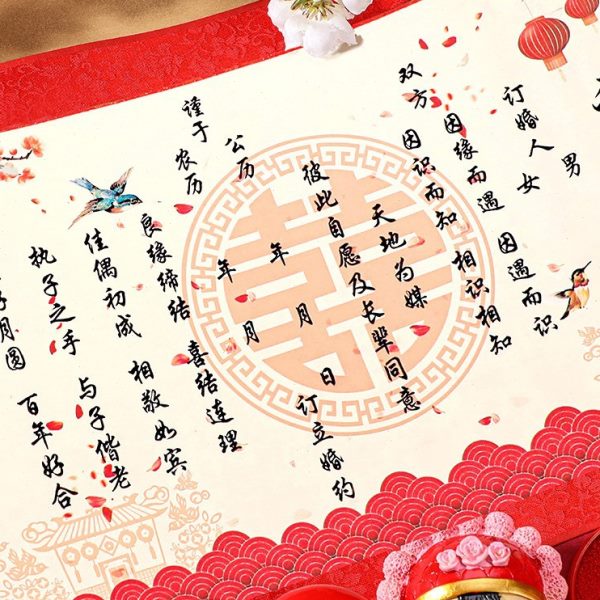 男
订婚人女
因缘而遇 因遇而识
双方因识而知 相识相知
天地为媒
彼此自愿及长辈同意
公历 年 月 日订立婚约
谨于农历 年 月
良缘缔结 喜结连理
佳偶初成 相敬如宾
执子之手 与子偕老
好月圆 百年好合